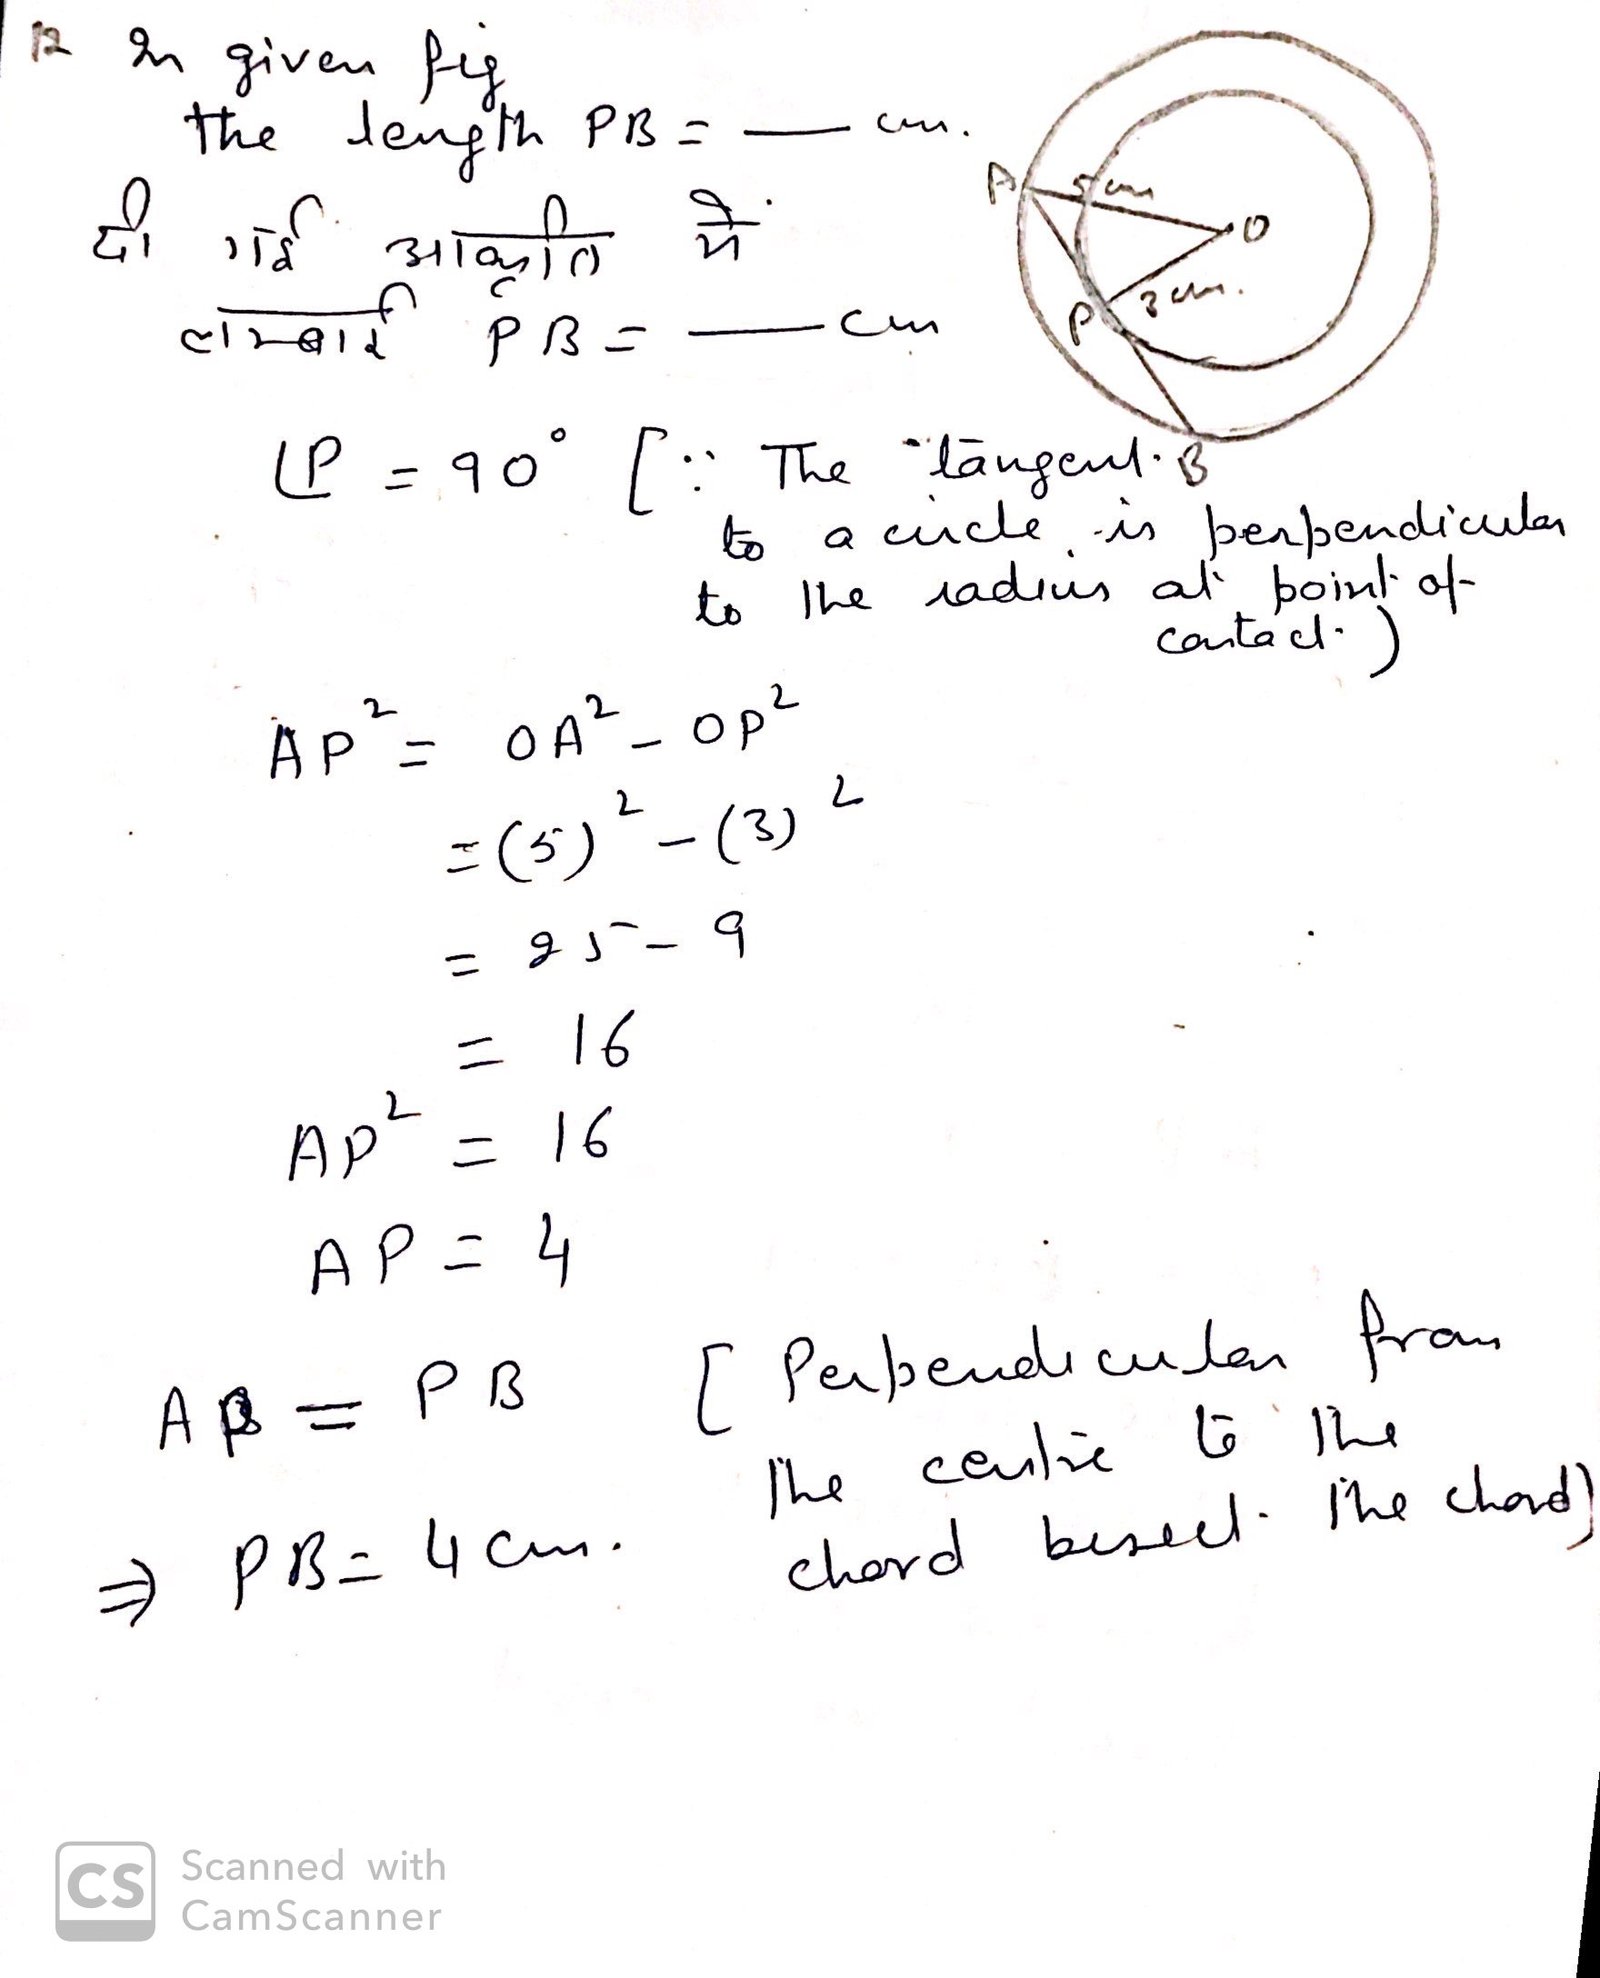 12 In given fig
the length PB = ___ cm.
A
5 cm
O
3 cm.
P
B
दी गई आकृति में
लम्बाई PB = ___ cm
∟P = 90° [∵ The tangent
to a circle is perpendicular
to the radius at point of
contact.)
AP² = OA² - OP²
= (5)² - (3)²
= 25 - 9
= 16
AP² = 16
AP = 4
AP = PB [Perpendicular from
the centre to the
chord bisect the chord)
⇒ PB = 4 cm.
CS Scanned with
CamScanner